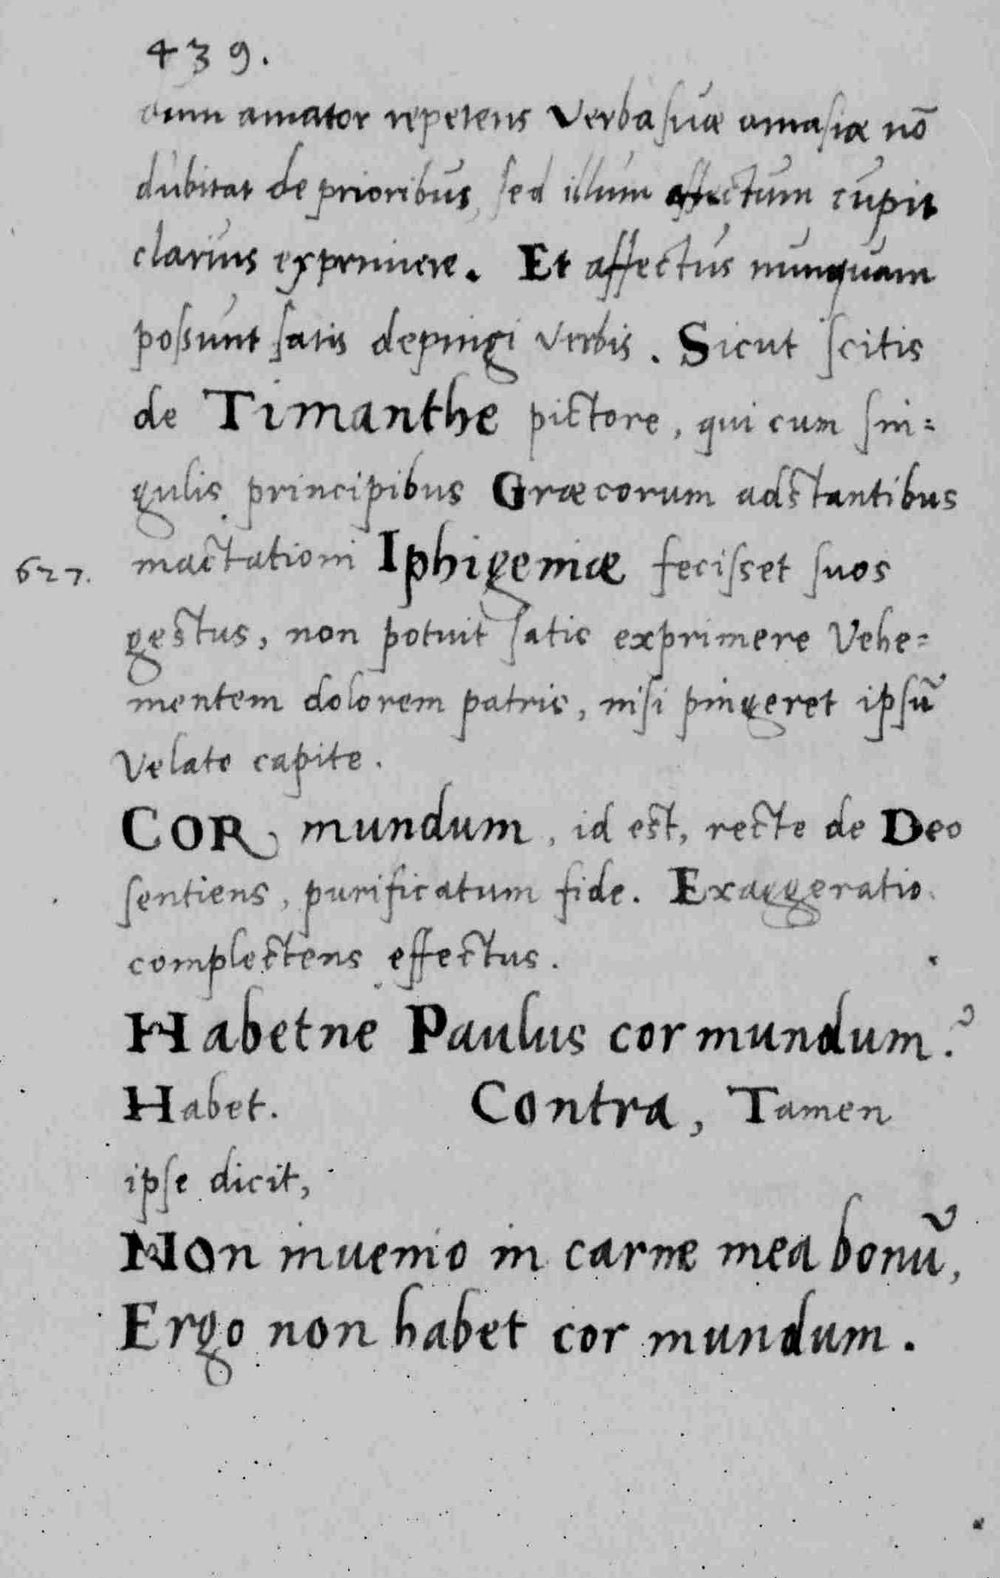 439.
dum amator repetens verba suæ amasiæ nō
dubitat de prioribus, sed illum affectum cupit
clarius exprimere. Et affectus nunquam
possunt satis depingi verbis. Sicut scitis
de Timanthe pictore, qui cum sin=
gulis principibus Græcorum adstantibus
627. mactationi Iphigeniæ fecisset suos
gestus, non potuit satis exprimere Vehe=
mentem dolorem patris, nisi pingeret ipsū
Velato capite.
COR mundum, id est, recte de Deo
sentiens, purificatum fide. Exaggeratio
complectens effectus.
Habetne Paulus cor mundum?
Habet. Contra, Tamen
ipse dicit,
Non invenio in carne mea bonū,
Ergo non habet cor mundum.